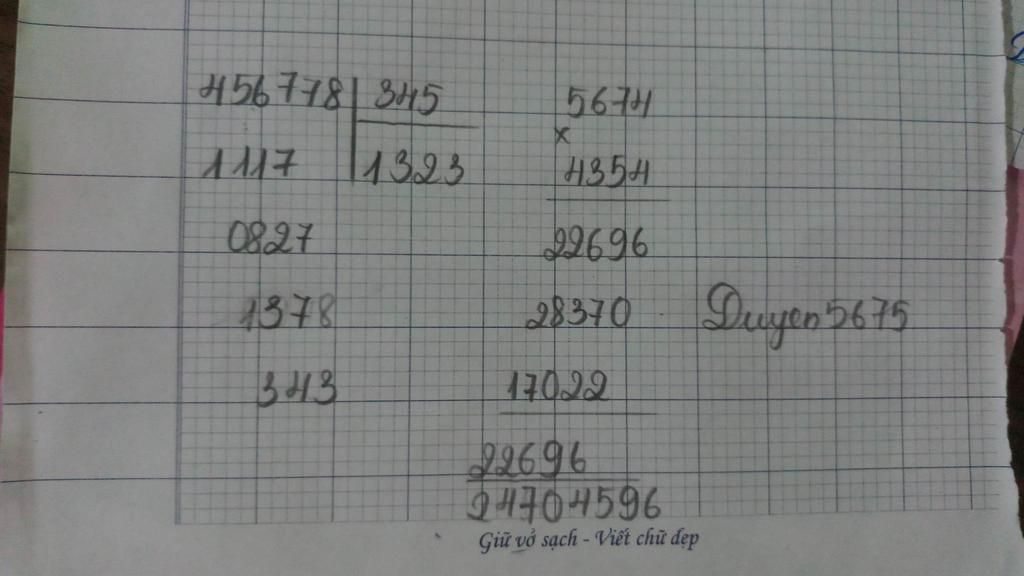 456778 345
1117 1323
0827
1378
343
5674
x
4354
22696
28370
17022
22696
24704596
Duyen5675
Giữ vở sạch - Viết chữ đẹp